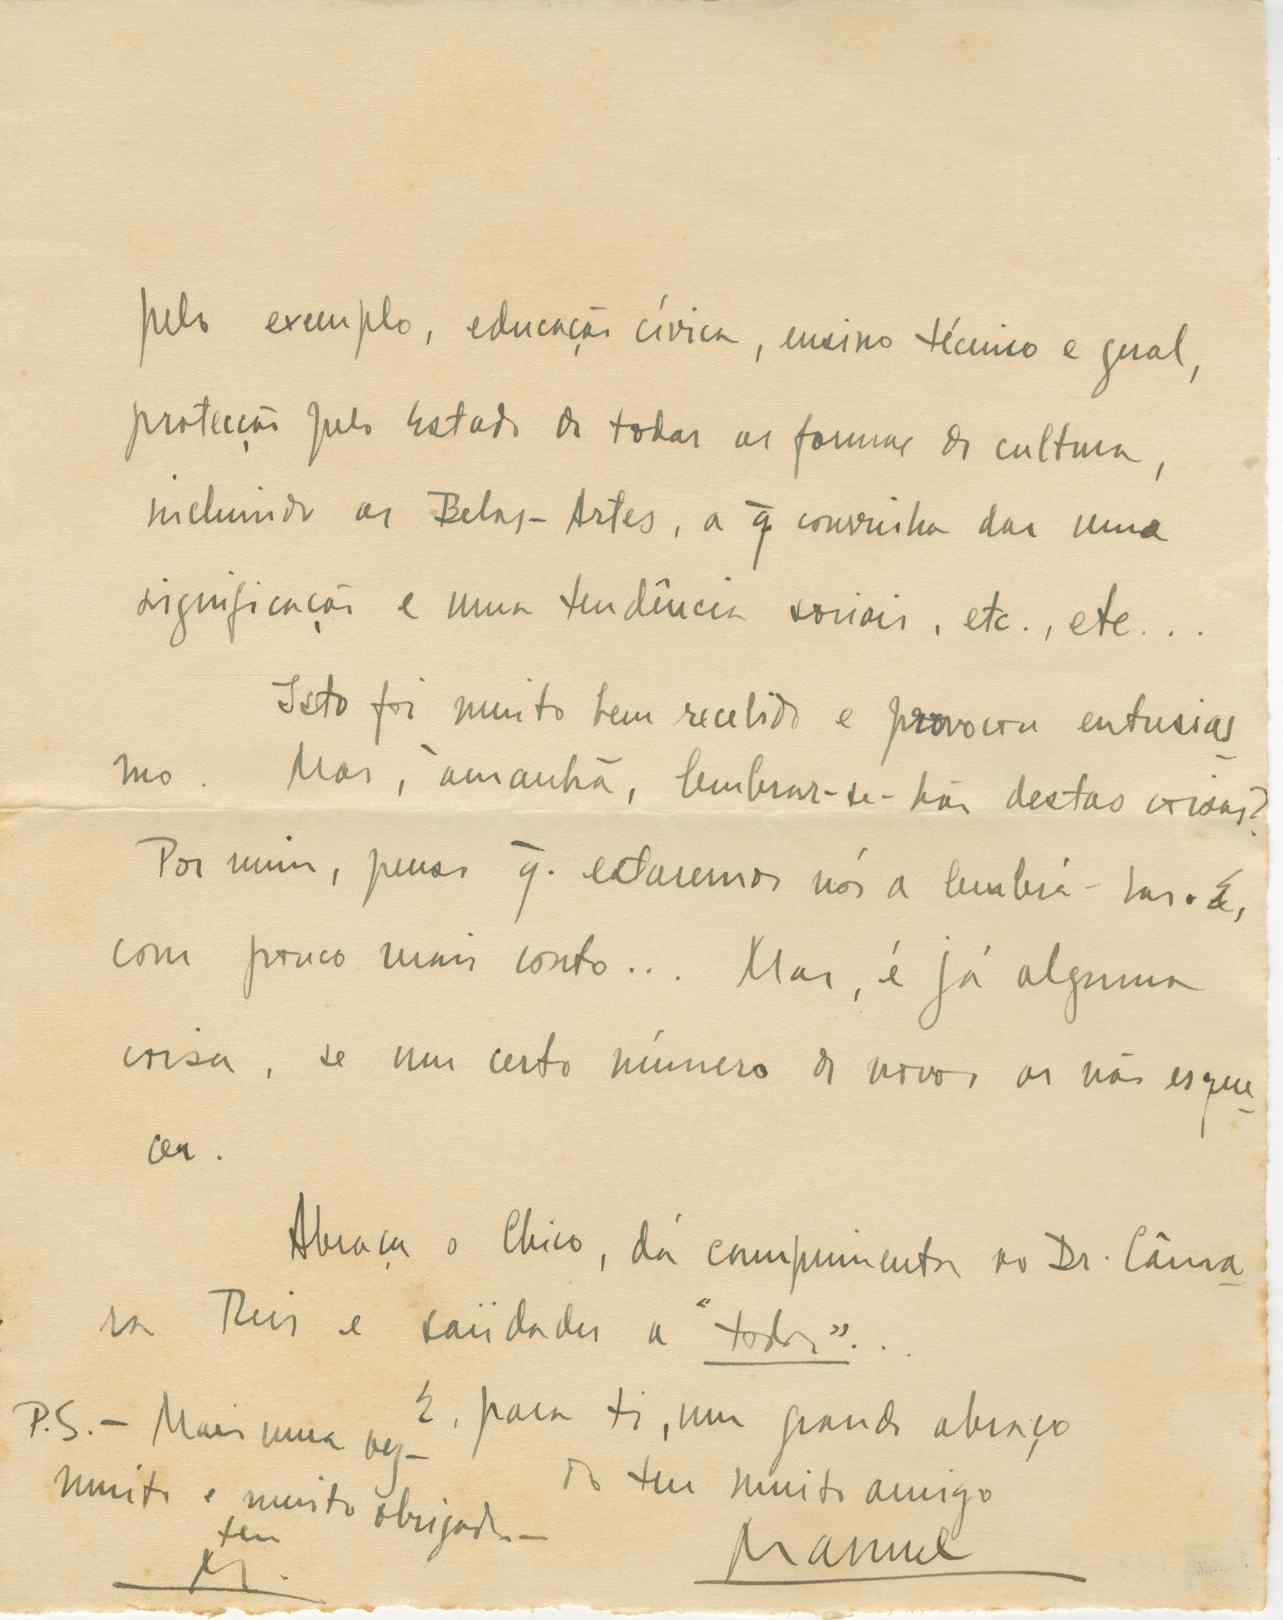 pelo exemplo, educação cívica, ensino técnico e geral,
protecção pelo Estado de todas as formas de cultura,
incluindo as Belas-Artes, a q̄ convinha dar uma
significação e uma tendência sociais, etc., etc...
Isto foi muito bem recebido e provocou entusias-
mo. Mas, àmanhã, lembrar-se-hão destas coisas?
Por mim, penso q̄. estaremos nós a lembrá-las. E,
com pouco mais conto... Mas, é já alguma
coisa, se um certo número de novos as não esque-
cer.
Abraça o Chico, dá cumprimentos ao Dr. Câma-
ra Reis e saüdades a "todos"...
E, para ti, um grande abraço
do teu muito amigo
Manuel
P.S. - Mais uma vez -
muito e muito obrigado. -
teu
M.